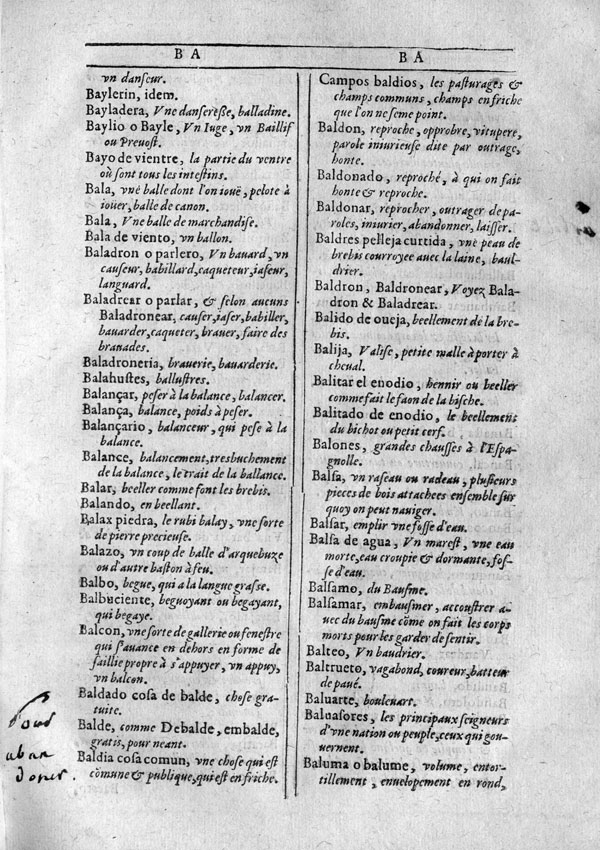 B A
vn danseur.
Baylerin, idem.
Bayladera, Vne danseresse, balladine.
Baylio o Bayle, Vn Iuge, vn Baillif
ou Preuost.
Bayo de vientre, la partie du ventre
où sont tous les intestins.
Bala, vne balle dont l'on iouë, pelote à
iouer, balle de canon.
Bala, Vne balle de marchandise.
Bala de viento, vn ballon.
Baladron o parlero, Vn bauard, vn
causeur, babillard, caqueteur, iaseur,
languard.
Baladrear o parlar, & selon aucuns
Baladronear, causer, iaser, babiller,
bauarder, caqueter, brauer, faire des
brauades.
Baladroneria, brauerie, bauarderie.
Balahustes, ballustres.
Balançar, peser à la balance, balancer.
Balança, balance, poids à peser.
Balançario, balanceur, qui pese à la
balance.
Balance, balancement, tresbuchement
de la balance, le trait de la ballance.
Balar, beeller comme font les brebis.
Balando, en beellant.
Balax piedra, le rubi balay, vne sorte
de pierre precieuse.
Balazo, vn coup de balle d'arquebuze
ou d'autre baston à feu.
Balbo, begue, qui a la langue grasse.
Balbuciente, beguoyant ou begayant,
qui begaye.
Balcon, vne sorte de gallerie ou fenestre
qui s'auance en dehors en forme de
saillie propre à s'appuyer, vn appuy,
vn balcon.
Baldado cosa de balde, chose gra-
tuite.
Balde, comme Debalde, embalde,
gratis, pour neant.
Baldia cosa comun, vne chose qui est
cõmune & publique, qui est en friche.
aban
doner.
B A
Campos baldios, les pasturages &
champs communs, champs en friche
que l'on ne seme point.
Baldon, reproche, opprobre, vitupere,
parole iniurieuse dite par outrage,
honte.
Baldonado, reproché, à qui on fait
honte & reproche.
Baldonar, reprocher, outrager de pa-
roles, iniurier, abandonner, laisser.
Baldres pelleja curtida, vne peau de
brebis courroyee auec la laine, baul-
drier.
Baldron, Baldronear, Voyez Bala-
dron & Baladrear.
Balido de oueja, beellement de la bre-
bis.
Balija, Valise, petite malle à porter à
cheual.
Balitar el enodio, hennir ou beeller
comme fait le faon de la bische.
Balitado de enodio, le beellement
du bichot ou petit cerf.
Balones, grandes chausses à l'Espa-
gnolle.
Balsa, vn raseau ou radeau, plusieurs
pieces de bois attachees ensemble sur
quoy on peut nauiger.
Balsar, emplir vne fosse d'eau.
Balsa de agua, Vn marest, vne eau
morte, eau croupie & dormante, fos-
se d'eau.
Balsamo, du Bausme.
Balsamar, embausmer, accoustrer a-
uec du bausme cõme on fait les corps
morts pour les garder de sentir.
Balteo, Vn baudrier.
Baltrueto, vagabond, coureur, batteur
de paué.
Baluarte, bouleuart.
Baluasores, les principaux seigneurs
d'vne nation ou peuple, ceux qui gou-
uernent.
Baluma o balume, volume, entor-
tillement, enuelopement en rond,